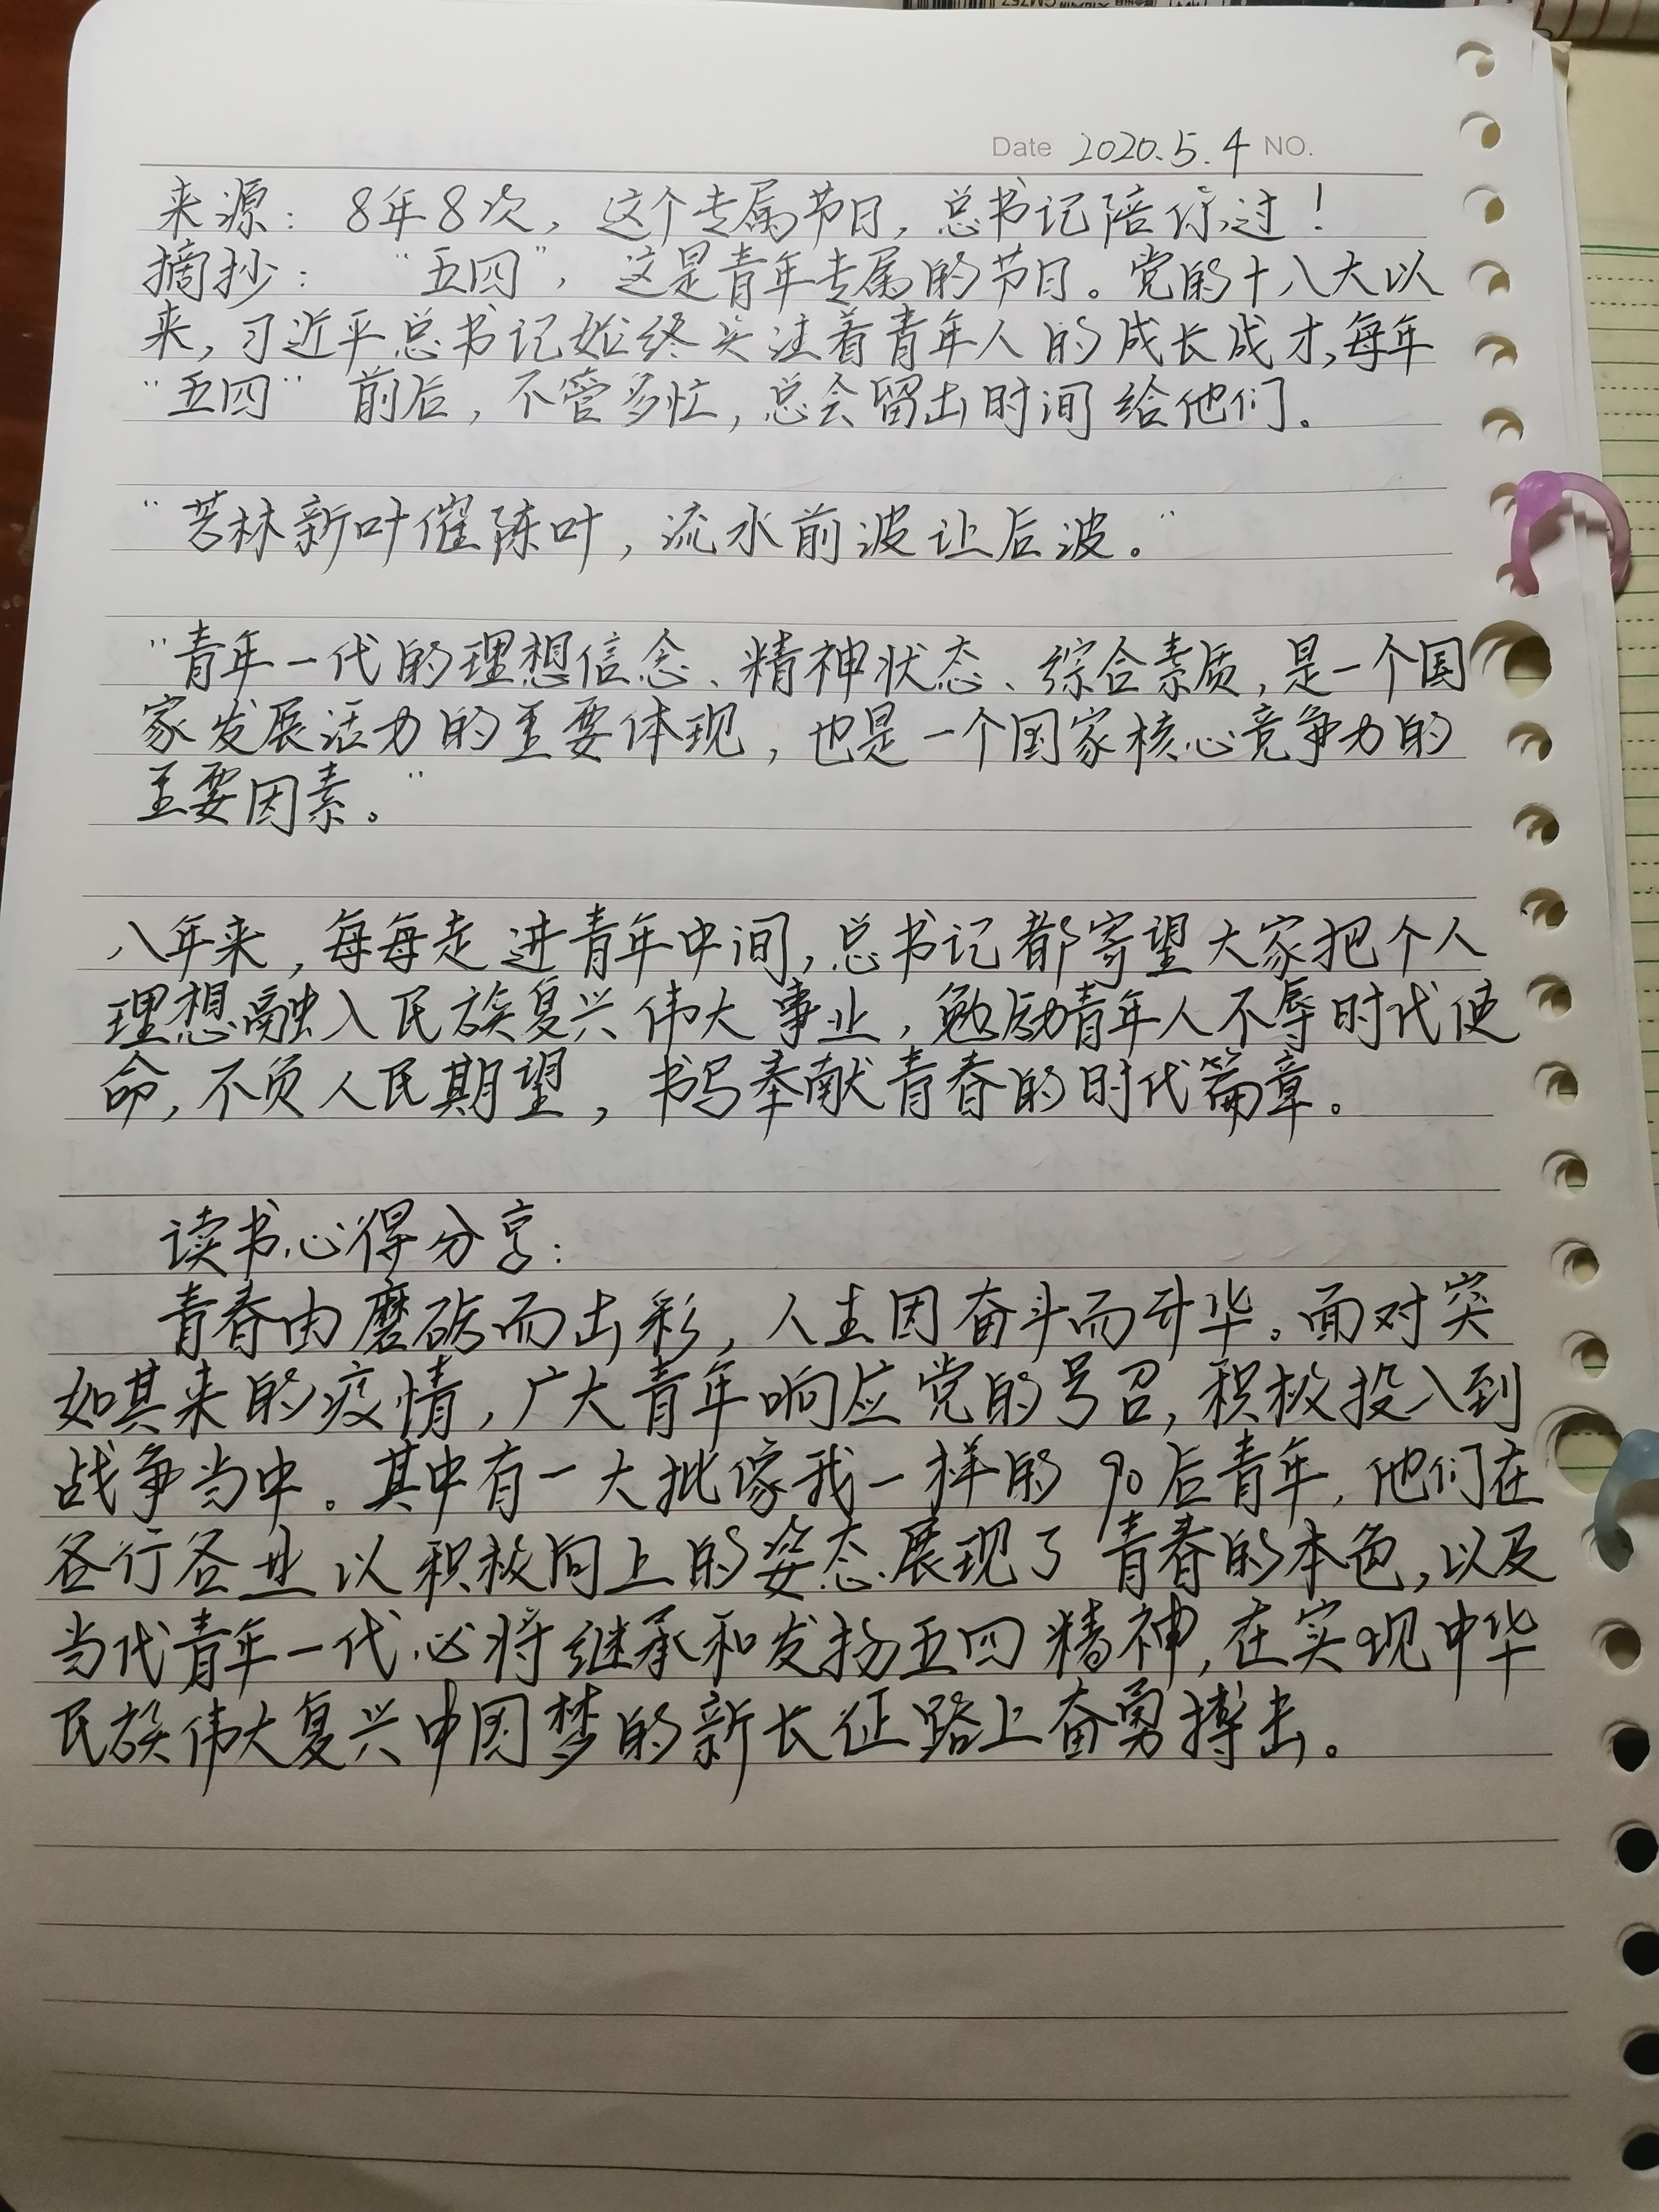 Date 2020.5.4 NO.
来源：8年8次，这个专属节日，总书记陪你过！
摘抄：“五四”，这是青年专属的节日。党的十八大以
来，习近平总书记始终关注着青年人的成长成才，每年
“五四”前后，不管多忙，总会留出时间给他们。
“芳林新叶催陈叶，流水前波让后波。”
“青年一代的理想信念、精神状态、综合素质，是一个国
家发展活力的重要体现，也是一个国家核心竞争力的
重要因素。”
八年来，每每走进青年中间，总书记都寄望大家把个人
理想融入民族复兴伟大事业，勉励青年人不辱时代使
命，不负人民期望，书写奉献青春的时代篇章。
读书心得分享：
青春由磨砺而出彩，人生因奋斗而升华。面对突
如其来的疫情，广大青年响应党的号召，积极投入到
战争当中。其中有一大批像我一样的90后青年，他们在
各行各业以积极向上的姿态展现了青春的本色，以及
当代青年一代必将继承和发扬五四精神，在实现中华
民族伟大复兴中国梦的新长征路上奋勇搏击。